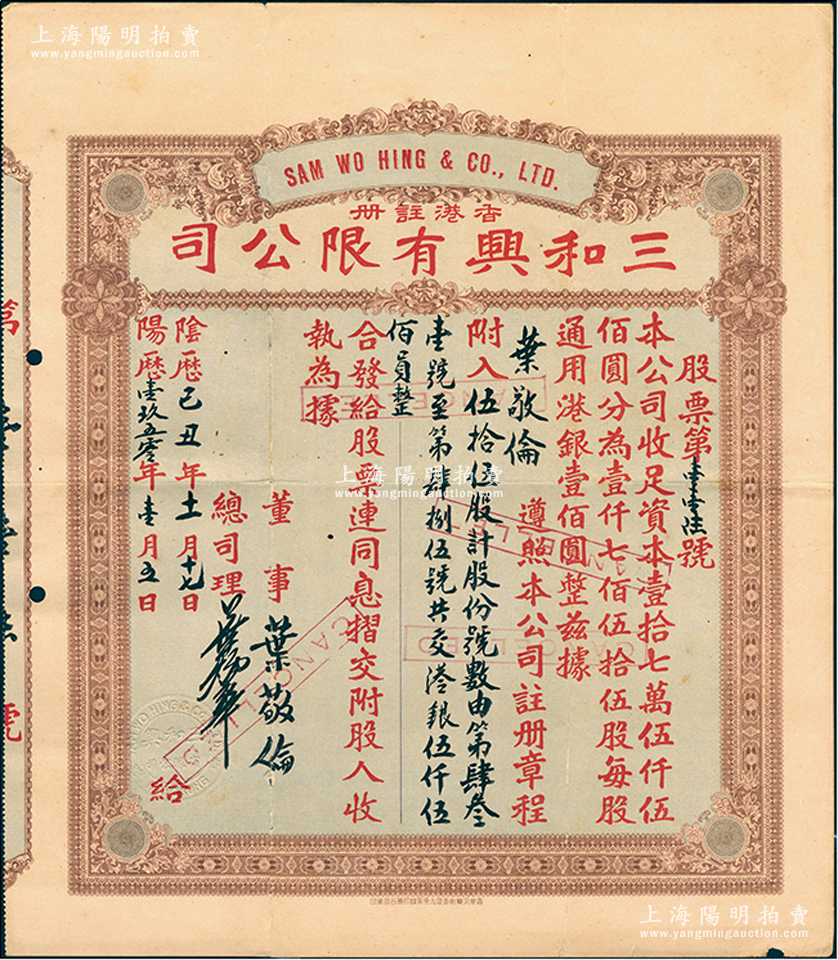 上海陽明拍賣
www.yangmingauction.com
SAM WO HING & CO., LTD.
香港註册
三和興有限公司
股票第壹壹陸號
本公司收足資本壹拾七萬伍仟伍
佰圓分為壹仟七佰伍拾伍股每股
通用港銀壹佰圓整茲據
葉敬倫 遵照本公司註册章程
附入伍拾伍股計股份號數由第肆叁
壹號至第肆捌伍號共交港銀伍仟伍
佰員整
合發給股票連同息摺交附股人收
執為據
董事葉敬倫
總司理
給
陰歷己丑年十一月十七日
陽歷壹玖五零年壹月五日
CANCELLED
CANCELLED
CANCELLED
CANCELLED
第
號
上海陽明拍賣
www.yangmingauction.com
上海陽明拍賣
www.yangmingauction.com